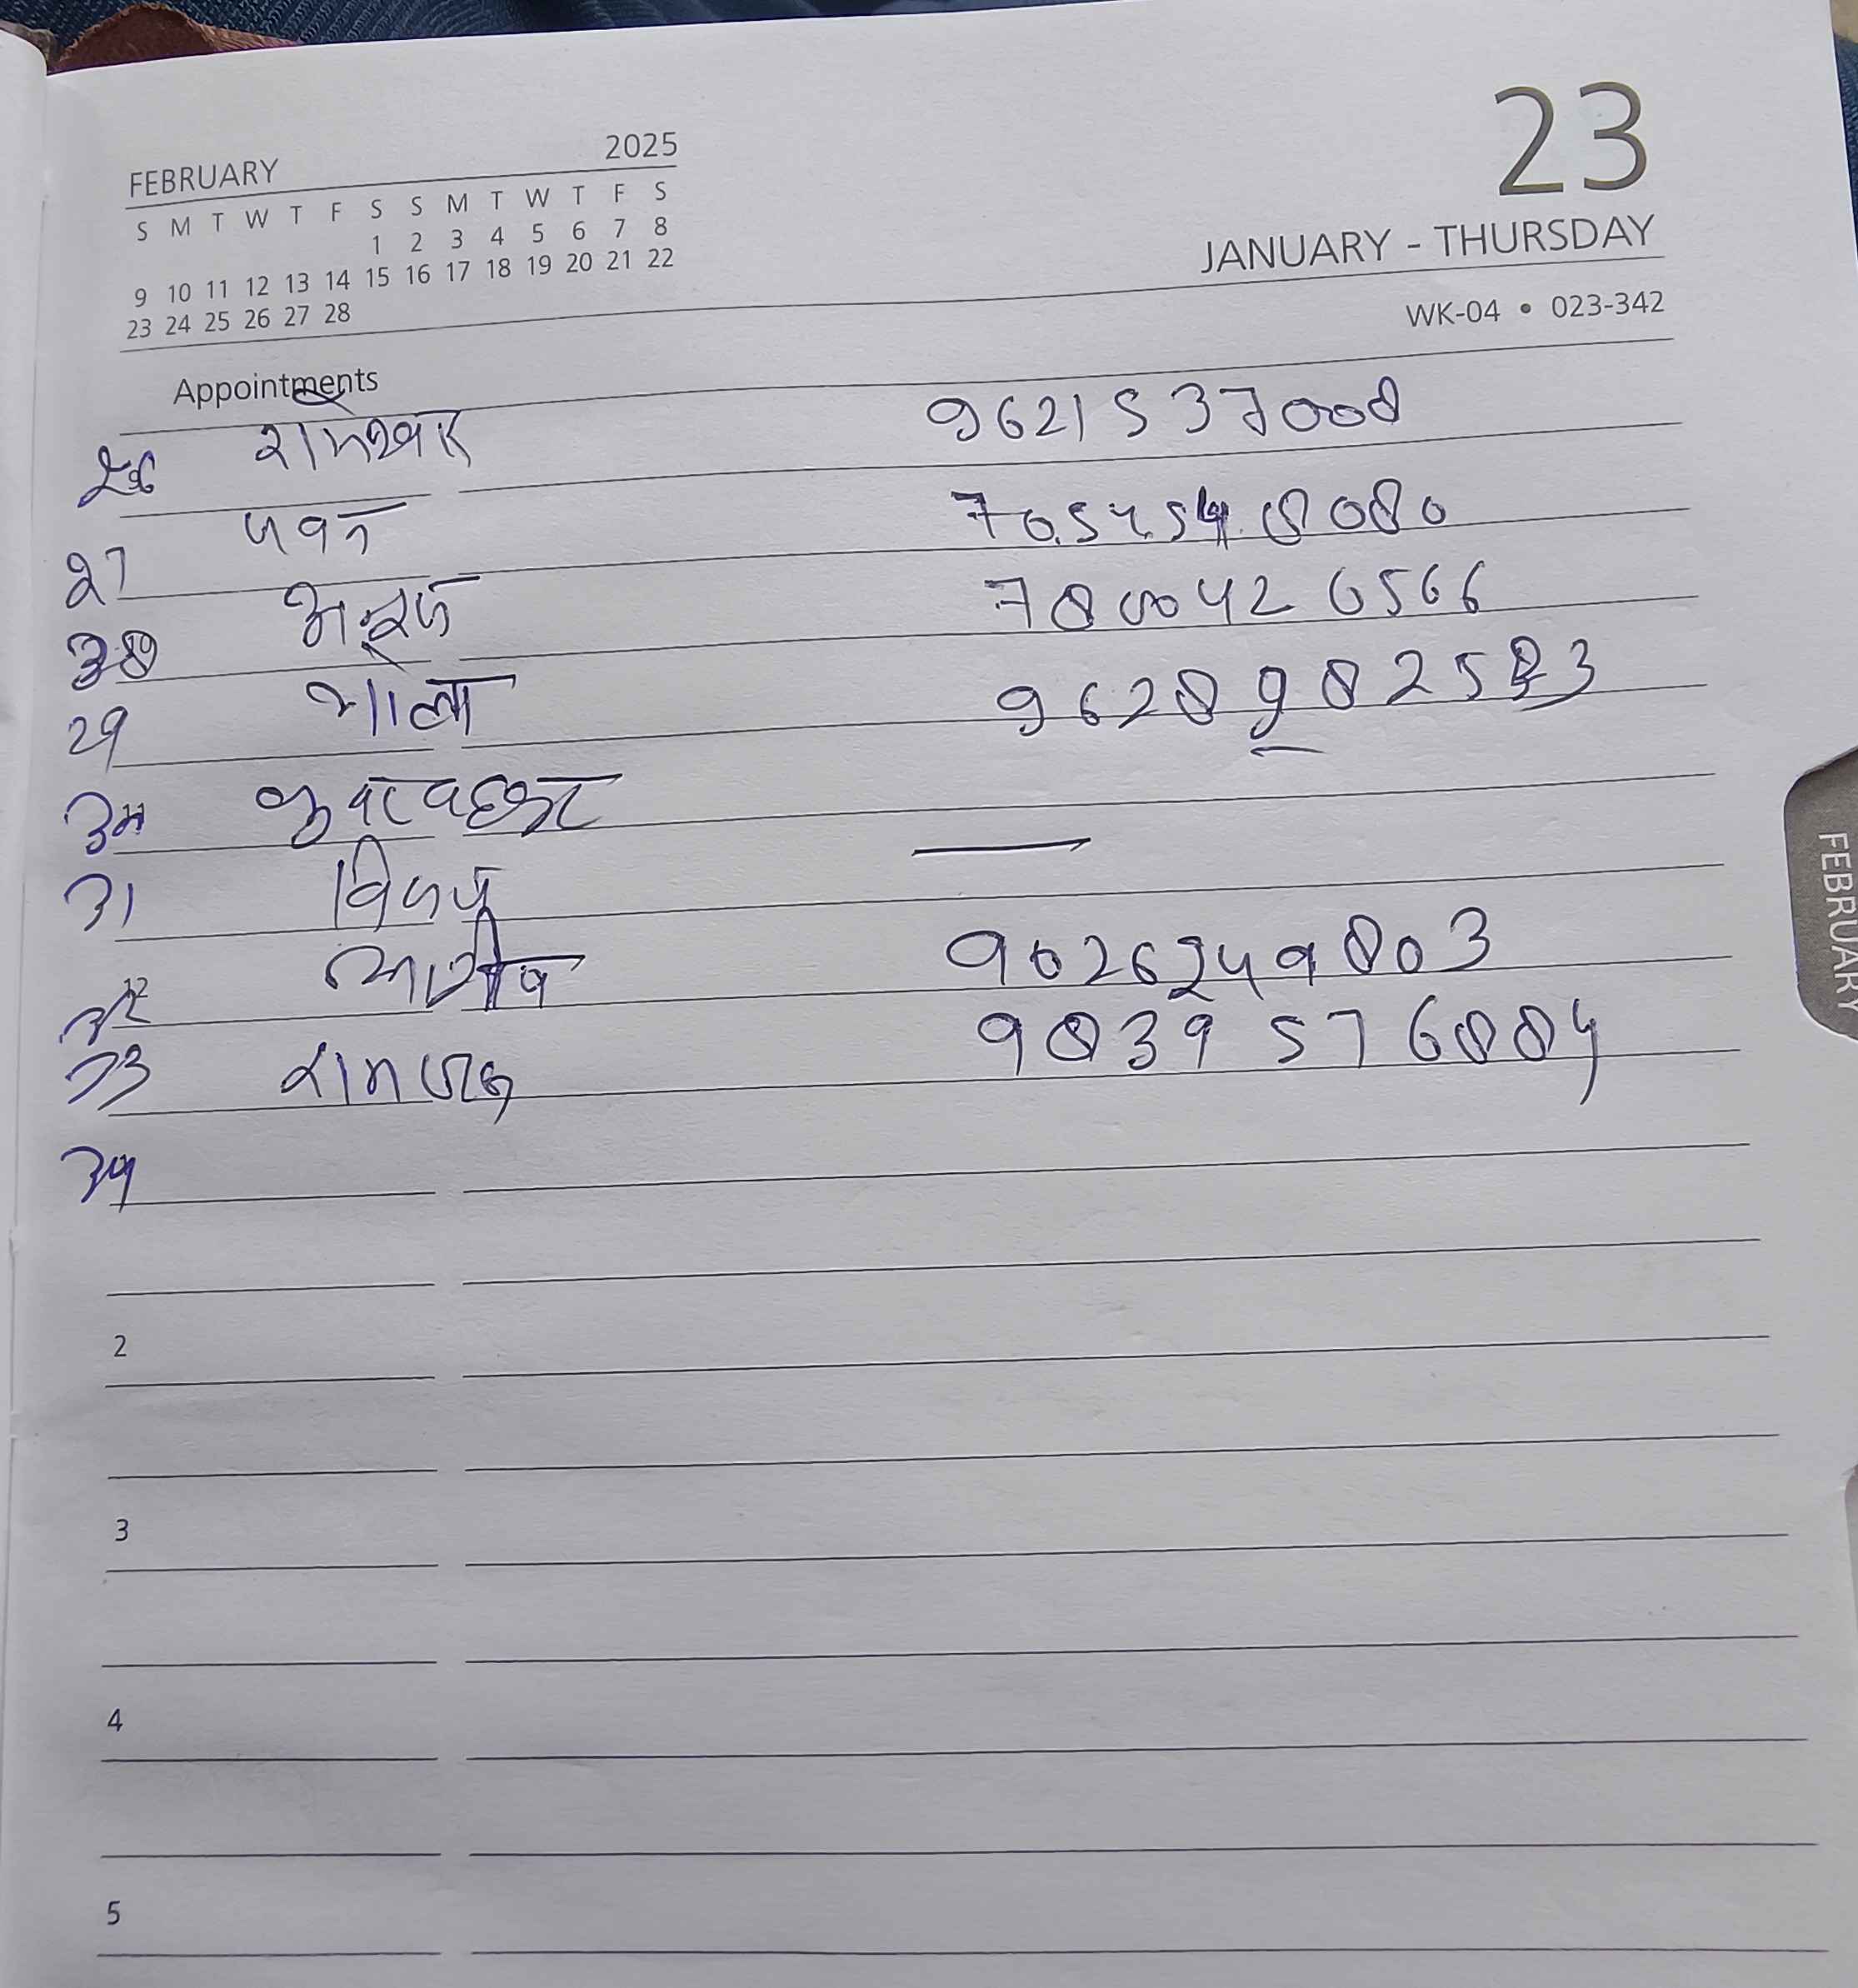 FEBRUARY 2025
S M T W T F S S M T W T F S
1 2 3 4 5 6 7 8
9 10 11 12 13 14 15 16 17 18 19 20 21 22
23 24 25 26 27 28
23
JANUARY - THURSDAY
WK-04 • 023-342
Appointments
26 रामेश्वर 9621537008
27 पवन
28 7800426566
29 भोला
30
31 विजय
32 9026249803
33 9839576884
34
2
3
4
5
FEBRUARY